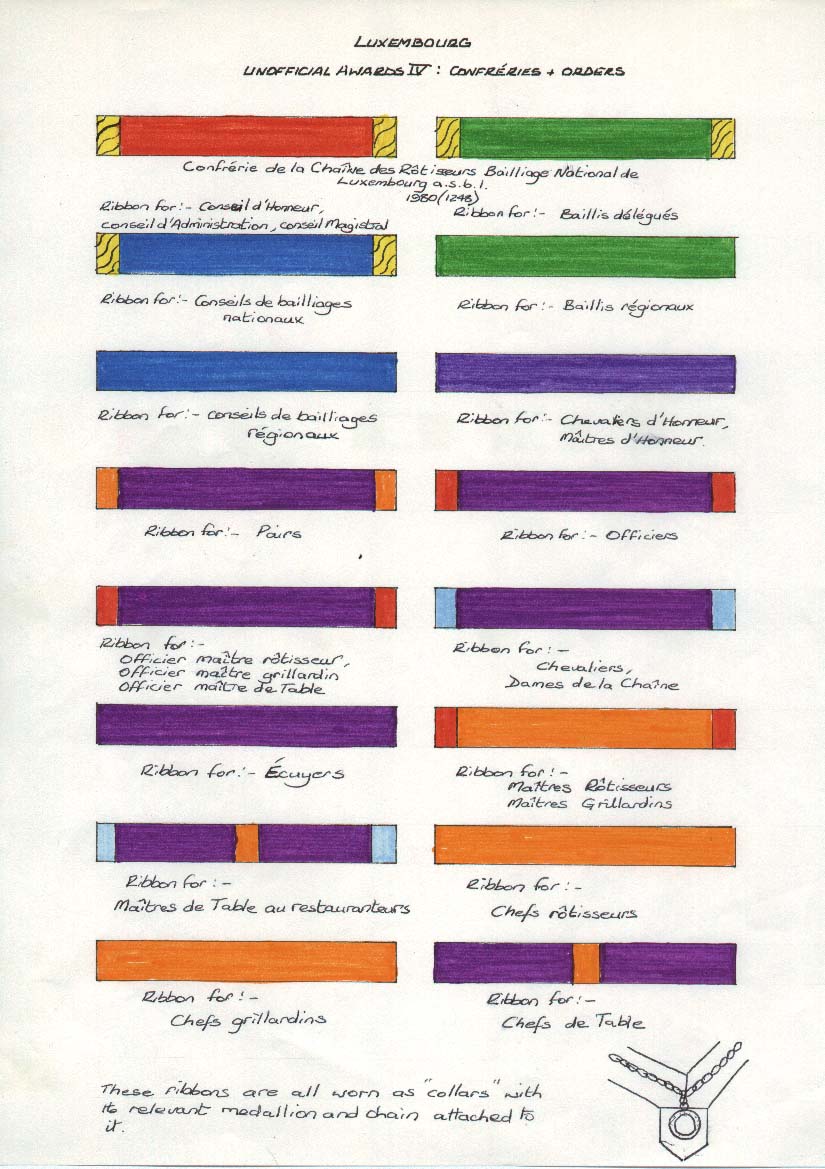 LUXEMBOURG
UNOFFICIAL AWARDS IV : CONFRÉRIES + ORDERS
Confrérie de la Chaîne des Rôtisseurs Bailliage National de
Luxembourg a.s.b.l.
1980 (1248)
Ribbon for:- Conseil d'Honneur,
conseil d'Administration, conseil Magistral
Ribbon for:- Baillis délégués
Ribbon for:- Conseils de bailliages
nationaux
Ribbon for:- Baillis régionaux
Ribbon for:- Conseils de bailliages
régionaux
Ribbon for:- Chevaliers d'Honneur,
Maîtres d'Honneur.
Ribbon for:- Pairs
Ribbon for:- Officiers
Ribbon for:-
Officier maître rôtisseur,
Officier maître grillardin
Officier maître de Table
Ribbon for:-
Chevaliers,
Dames de la Chaîne
Ribbon for:- Écuyers
Ribbon for:-
Maîtres Rôtisseurs
Maîtres Grillardins
Ribbon for:-
Maîtres de Table au restauranteurs
Ribbon for:-
Chefs rôtisseurs
Ribbon for:-
Chefs grillardins
Ribbon for:-
Chefs de Table
These ribbons are all worn as "collars" with
its relevant medallion and chain attached to
it.